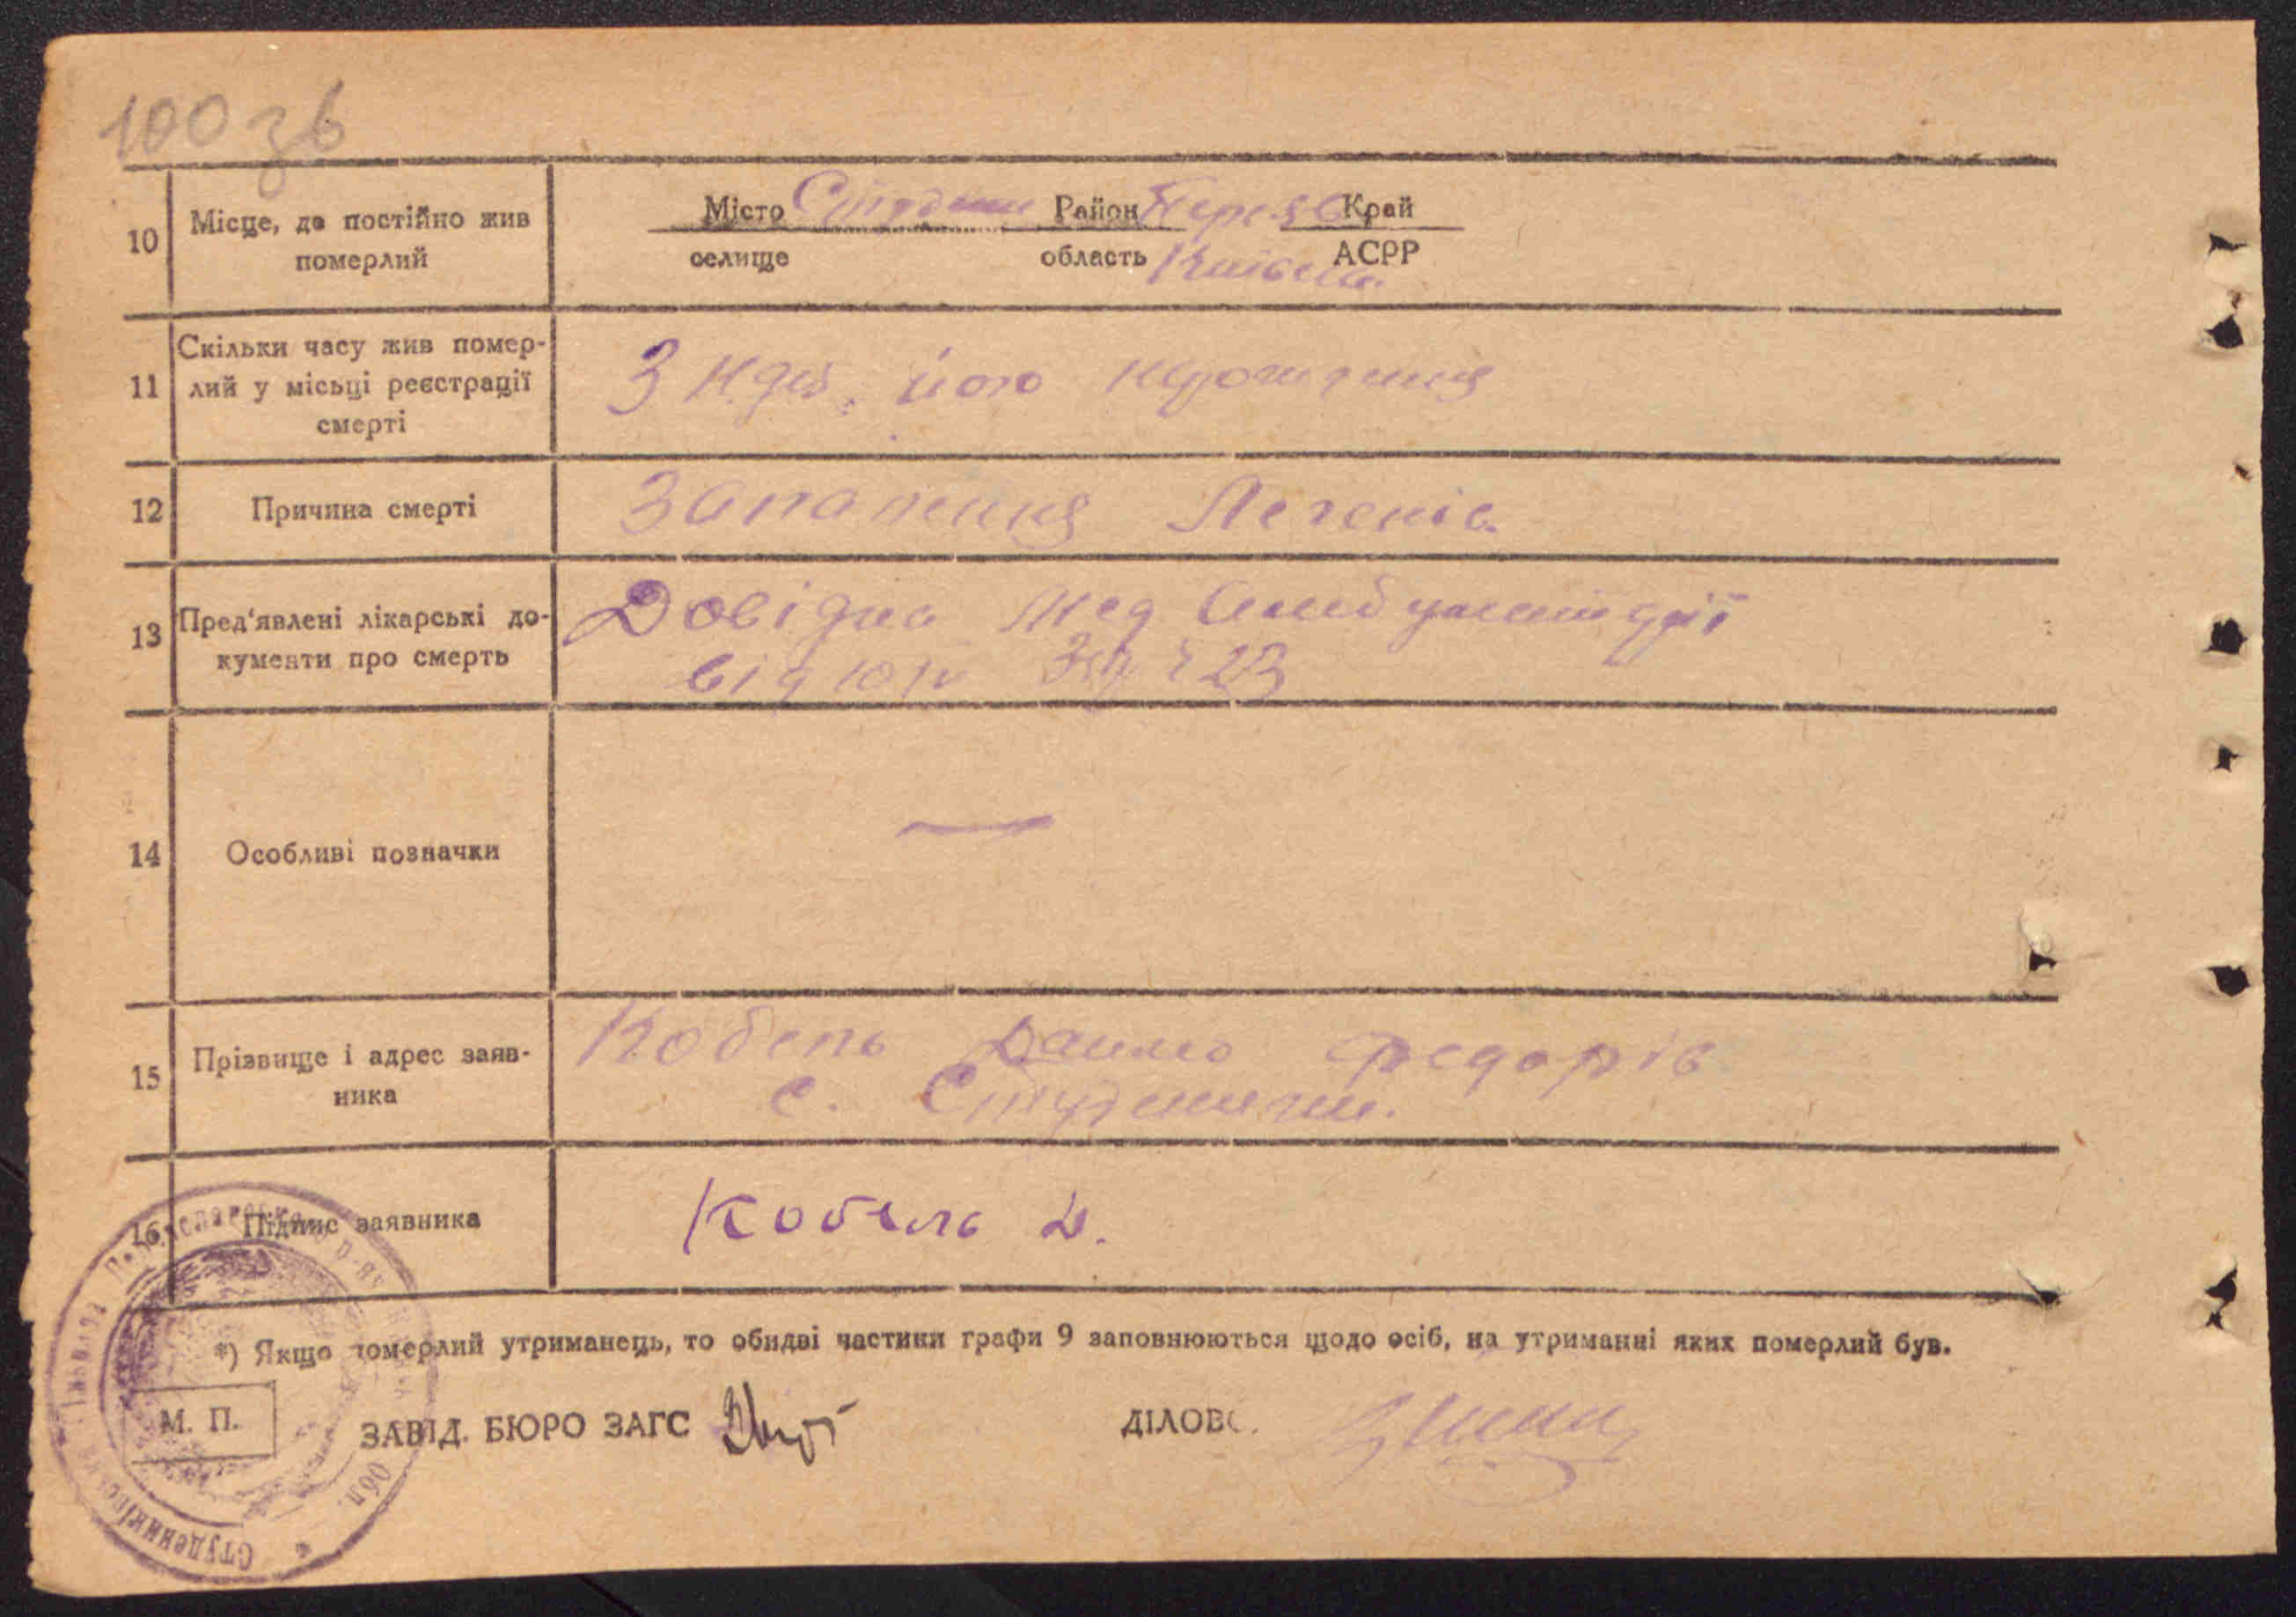 100 зв
10 Місце, де постійно жив померлий
Місто Район Перея Край
селище область Київськ. АСРР
11 Скільки часу жив помер-
лий у місьці реєстрації
смерті
З дня його народження
12 Причина смерті
Запалення Легенів
13 Пред'явлені лікарські до-
кументи про смерть
Довідка Мед Амбулаторії
від
14 Особливі позначки
—
15 Прізвище і адрес заяв-
ника
Кобель Данило Федорів
с. Студеники.
16 Підпис заявника
Кобель Д.
*) Якщо померлий утриманець, то обидві частини графи 9 заповнюються щодо осіб, на утриманні яких померлий був.
М. П.
ЗАВІД. БЮРО ЗАГС
ДІЛОВ
Обл.